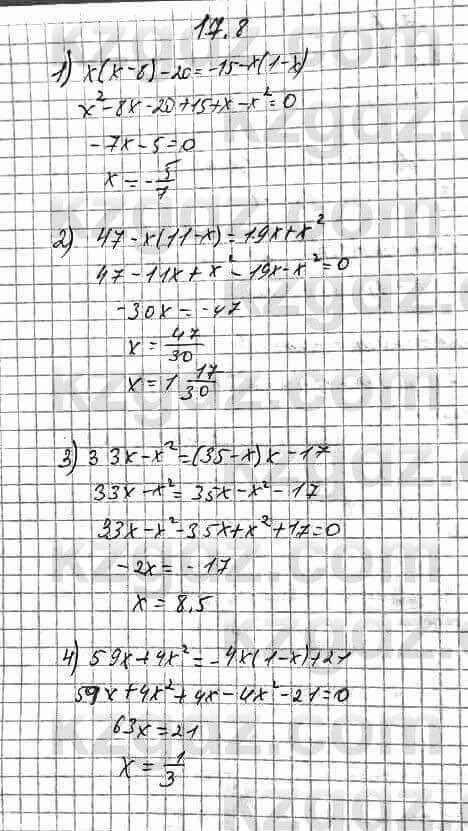 17.8
1) x(x-8)-20=-15-x(1-x)
x²-8x-20+15+x-x²=0
-7x-5=0
x=-5/7
2) 47-x(11-x)=19x+x²
47-11x+x²-19x-x²=0
-30x=-47
x=47/30
x=1 17/30
3) 33x-x²=(35-x)x-17
33x-x²=35x-x²-17
33x-x²-35x+x²+17=0
-2x=-17
x=8,5
4) 59x+4x²=-4x(1-x)+21
59x+4x²+4x-4x²-21=0
63x=21
x=1/3